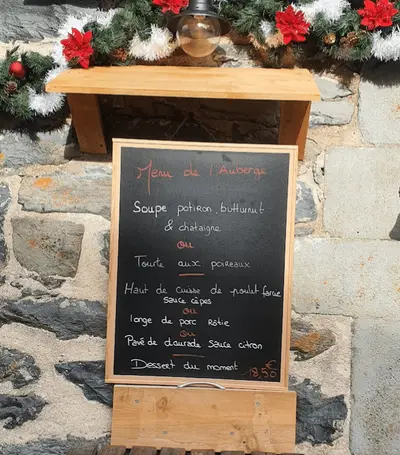 Menu de l'Auberge
Soupe potiron butturnut
& chataigne
ou
Tourte aux poireaux
Haut de cuisse de poulet farcie
sauce cèpes
ou
longe de porc Rôtie
ou
Pavé de daurade sauce citron
Dessert du moment
18,50 €